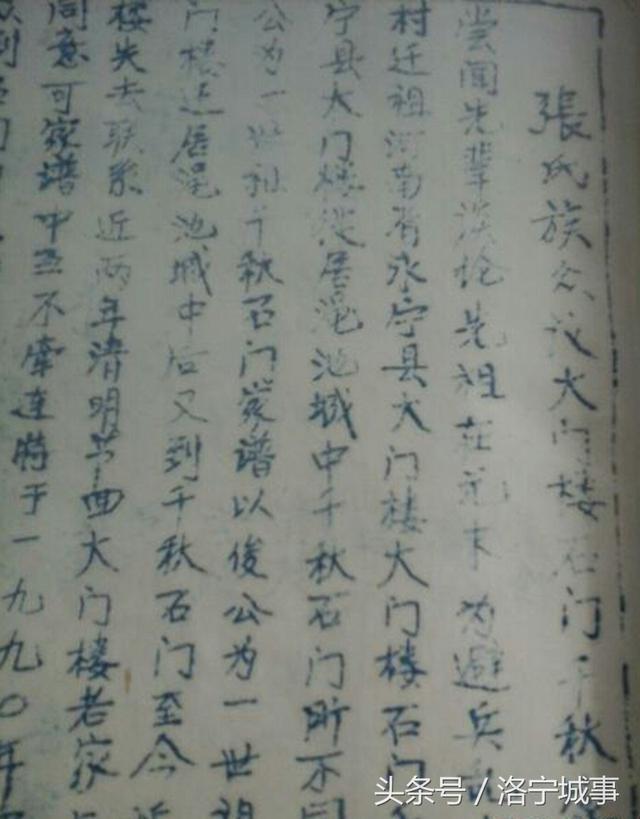 張氏族众议大门楼石门千秋
尝闻先辈谈论先祖在元末为避兵乱
村迁祖河南省永宁县大门楼大门楼石门
宁县大门楼没居渑池城中千秋石门所不同
公为一世祖千秋石门家谱以俊公为一世祖
门楼迁居渑池城中后又到千秋石门至今近
楼失去联系近两年清明节西大门楼老家
同意可家谱中至不牵连特于一九九〇年
头条号／洛宁城事